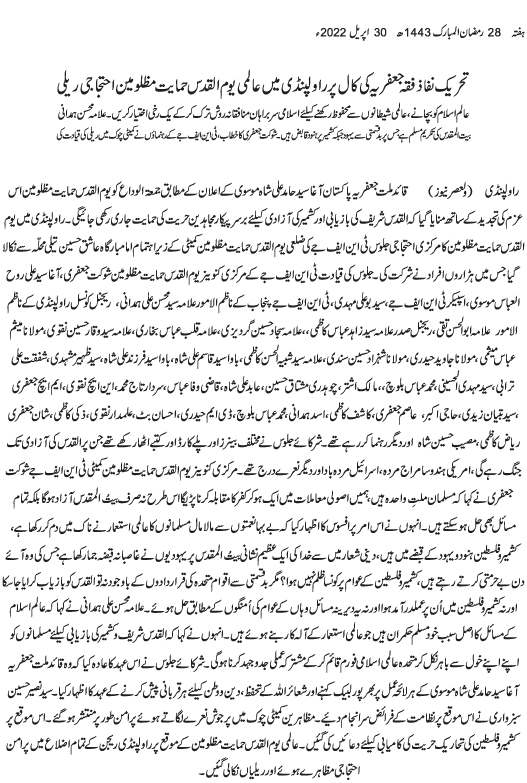 ہفتہ 28 رمضان المبارک 1443ھ 30 اپریل 2022ء
تحریک نفاذ فقہ جعفریہ کی کال پر راولپنڈی میں عالمی یوم القدس حمایت مظلومین احتجاجی ریلی
عالم اسلام کو بچانے، عالمی شیطانوں سے محفوظ رکھنے کیلئے اسلامی سربراہان منافقانہ روش ترک کر کے یک رخی اختیار کریں۔ علامہ محسن ہمدانی
بیت المقدس کی تکریم مسلم ہے جس پر بدقسمتی سے یہود جبکہ کشمیر پر ہنود قابض ہیں۔ شوکت جعفری کا خطاب، ٹی این ایف جے کے رہنماؤں نے کمیٹی چوک میں ریلی کی قیادت کی
راولپنڈی (ولعصر نیوز) قائد ملت جعفریہ پاکستان آغا سید حامد علی شاہ موسوی کے اعلان کے مطابق جمعۃ الوداع کو یوم القدس حمایت مظلومین اس
عزم کی تجدید کے ساتھ منایا گیا کہ القدس شریف کی بازیابی اور کشمیر کی آزادی کیلئے برسرپیکار مجاہدین حریت کی حمایت جاری رکھی جائیگی۔ راولپنڈی میں یوم
القدس حمایت مظلومین کا مرکزی احتجاجی جلوس ٹی این ایف جے کی ضلعی یوم القدس حمایت مظلومین کمیٹی کے زیر اہتمام امامبارگاہ عاشق حسین تیلی محلہ سے نکالا
گیا جس میں ہزاروں افراد نے شرکت کی۔ جلوس کی قیادت ٹی این ایف جے کے مرکزی کنوینر یوم القدس حمایت مظلومین شوکت جعفری، آغا سید علی روح
العباس موسوی، اسپیکر ٹی این ایف جے، سید بو علی مہدی، ٹی این ایف جے پنجاب کے ناظم الامور علامہ سید محسن علی ہمدانی، ریجنل کونسل راولپنڈی کے ناظم
الامور علامہ ابوالحسن تقی، ریجنل صدر علامہ سید زاہد عباس کاظمی، علامہ سجاد حسین گردیزی، علامہ قلب عباس بخاری، علامہ سید وقار حسین نقوی، مولانا میثم
عباس میثمی، مولانا جاوید حیدری، مولانا شہزاد حسین سندی، علامہ سید شبیہ الحسن کاظمی، باوا سید قاسم علی شاہ، باوا سید فرزند علی شاہ، سید ظہیر مشہدی، شفقت علی
ترابی، سید مہدی الحسینی، محمد عباس بلوچ، مالک اشتر، چوہدری مشتاق حسین، عابد علی شاہ، قاضی وفا عباس، سردار تاج محمد، این ایچ نقوی، ایم ایچ جعفری
، سید تبیان زیدی، حاجی اکبر، عاصم جعفری، کاشف کاظمی، اسد ہمدانی، محمد عباس بلوچ، ڈی ایم حیدری، احسان بٹ، علمدار نقوی، ذکی کاظمی، شان جعفری
ریاض کاظمی، مصیب حسین شاہ اور دیگر رہنما کر رہے تھے۔ شرکائے جلوس نے مختلف بینرز اور پلے کارڈ اور کتبے اٹھا رکھے تھے جن پر القدس کی آزادی تک
جنگ رہے گی، امریکی ہندو سامراج مردہ باد، اسرائیل مردہ باد اور دیگر نعرے درج تھے۔ مرکزی کنوینر یوم القدس حمایت مظلومین کمیٹی ٹی این ایف جے شوکت
جعفری نے کہا کہ مسلمان ملت واحدہ ہیں، ہمیں اصولی معاملات میں ایک ہو کر کفر کا مقابلہ کرنا پڑیگا اس طرح نہ صرف بیت المقدس آزاد ہوگا بلکہ تمام
مسائل بھی حل ہو سکتے ہیں۔ انہوں نے اس امر پر افسوس کا اظہار کیا کہ بے بہا نعمتوں سے مالا مال مسلمانوں کا عالمی استعمار نے ناک میں دم کر رکھا ہے،
کشمیر و فلسطین ہنود و یہود کے قبضے میں ہیں، دینی شعار میں سے خدا کی ایک عظیم نشانی بیت المقدس پر یہودیوں نے غاصبانہ قبضہ جما رکھا ہے جس کی وہ آئے
دن بے حرمتی کرتے رہتے ہیں، کشمیر و فلسطین کے عوام پر کونسا ظلم نہیں ہوا؟ مگر بدقسمتی سے اقوام متحدہ کی قراردادوں کے باوجود نہ تو القدس کو بازیاب کرایا جا سکا
اور نہ کشمیر و فلسطین میں اُن پر عملدرآمد ہوا اور نہ یہ دیرینہ مسائل وہاں کے عوام کی اُمنگوں کے مطابق حل ہوئے۔ علامہ محسن علی ہمدانی نے کہا کہ عالم اسلام
کے مسائل کا اصل سبب خود مسلم حکمران ہیں جو عالمی استعمار کے آلہ کار بنے ہوئے ہیں۔ انہوں نے کہا کہ القدس شریف و کشمیر کی بازیابی کیلئے مسلمانوں کو
اپنے اپنے خول سے باہر نکل کر متحدہ عالمی اسلامی فورم قائم کر کے مشترکہ عملی جدوجہد کرنا ہوگی۔ شرکائے جلوس نے اس عہد کا اعادہ کیا کہ وہ قائد ملت جعفریہ
آغا سید حامد علی شاہ موسوی کے ہر لائحہ عمل پر بھرپور لبیک کہنے اور شعائر اللہ کے تحفظ، دین و وطن کیلئے ہر قربانی پیش کرنے کے عہد کا اظہار کیا۔ سید نصیر حسین
سبزواری نے اس موقع پر نظامت کے فرائض سرانجام دیے۔ مظاہرین کمیٹی چوک میں پرجوش نعرے لگاتے ہوئے پرامن طور پر منتشر ہو گئے۔ اس موقع پر
کشمیر و فلسطین کی تحاریک حریت کی کامیابی کیلئے دعائیں کی گئیں۔ عالمی یوم القدس حمایت مظلومین کے موقع پر راولپنڈی ریجن کے تمام اضلاع میں پرامن
احتجاجی مظاہرے ہوئے اور ریلیاں نکالی گئیں۔